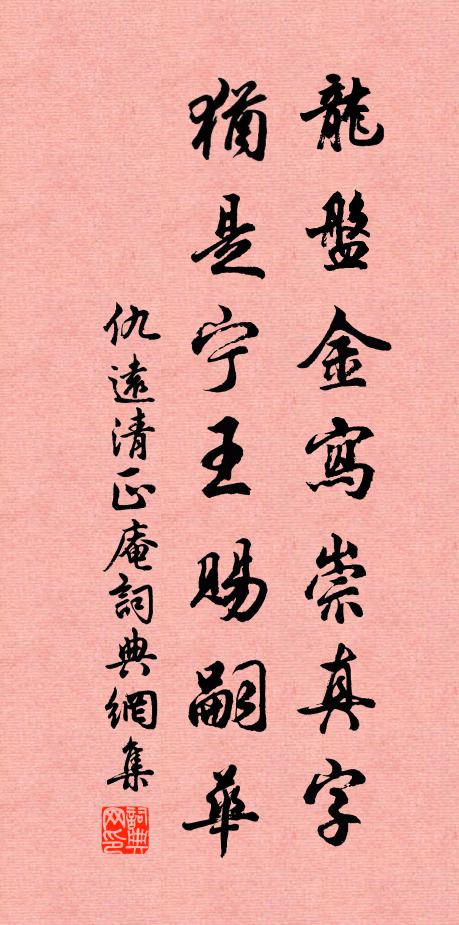 龍盤金寫崇真字
猶是宁王賜嗣華
仇遠清正庵詞典網集
詞典网印